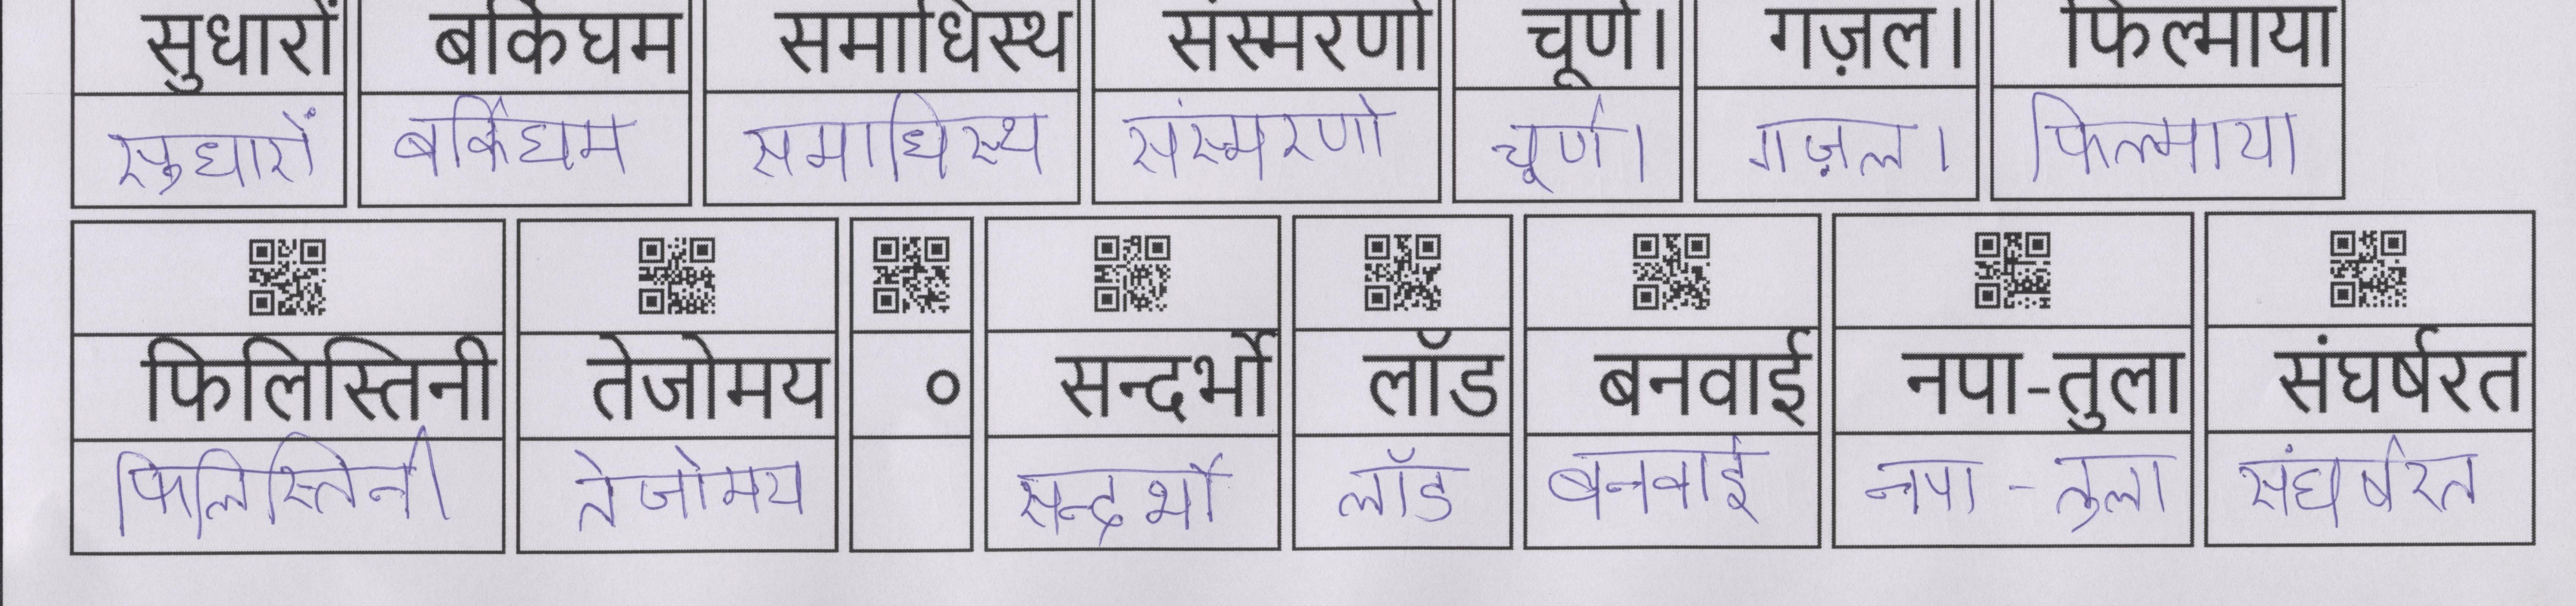 सुधारों बर्किंघम समाधिस्थ संस्मरणों चूर्ण। गज़ल। फिल्माया
सुधारों बर्किंघम समाधिस्थ संस्मरणो चूर्ण। गज़ल। फिल्माया
फिलिस्तिनी तेजोमय ० सन्दर्भों लॉड बनवाई नपा-तुला संघर्षरत
फिलिस्तिनी तेजोमय सन्दर्भो लॉड बनवाई नपा - तुला संघर्षरत